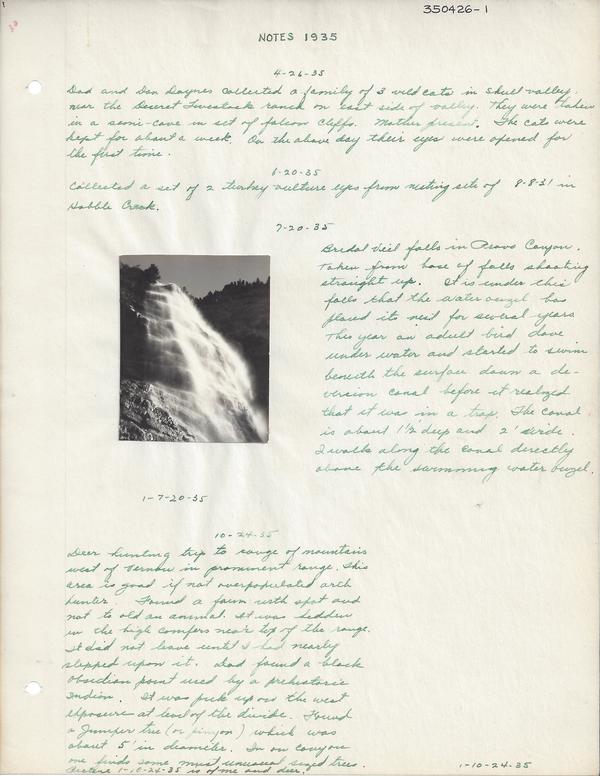 350426-1
NOTES 1935
4-26-35
Dad and Dan Daynes collected a family of 3 wild cats in Skull valley.
near the Deseret Livestock ranch on east side of valley. They were taken
in a semi-cave in set of falcon cliffs. Mother present. The cats were
kept for about a week. On the above day their eyes were opened for
the first time.
6-20-35
Collected a set of 2 turkey vulture eggs from nesting site of 8-8-31 in
Hobble Creek.
7-20-35
Bridal Veil falls in Provo Canyon.
Taken from base of falls shooting
straight up. It is under this
falls that the water ouzel has
placed its nest for several years
This year an adult bird dove
under water and started to swim
beneath the surface down a de-
version canal before it realized
that it was in a trap. The canal
is about 1 1/2' deep and 2' wide.
I walks along the canal directly
above the swimming water ouzel.
1-7-20-35
10-24-35
Deer hunting trip to range of mountains
west of Vernon in prominent range. This
area is good if not overpopulated with
hunter. Found a fawn with spot and
not to old an animal. It was bedded
in the high conifers near top of the range.
It did not leave until I had nearly
stepped upon it. Dad found a black
obsidian point used by a prehistoric
Indian. It was pick up on the west
exposure at head of the divide. Found
a Juniper tree (or pinyon) which was
about 5' in diameter. In on canyon
one finds some most unusual sized trees.
Picture 1-10-24-35 is of me and deer.
1-10-24-35